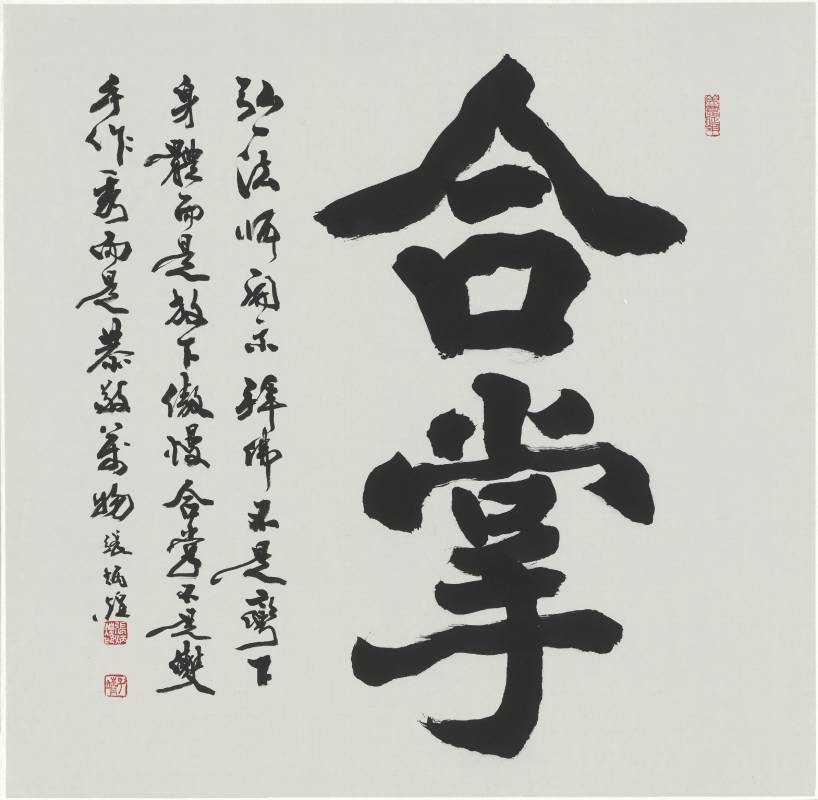 合掌
弘一法師開示拜佛不是彎下
身體而是放下傲慢合掌不是雙
手作秀而是恭敬萬物 張炳煌